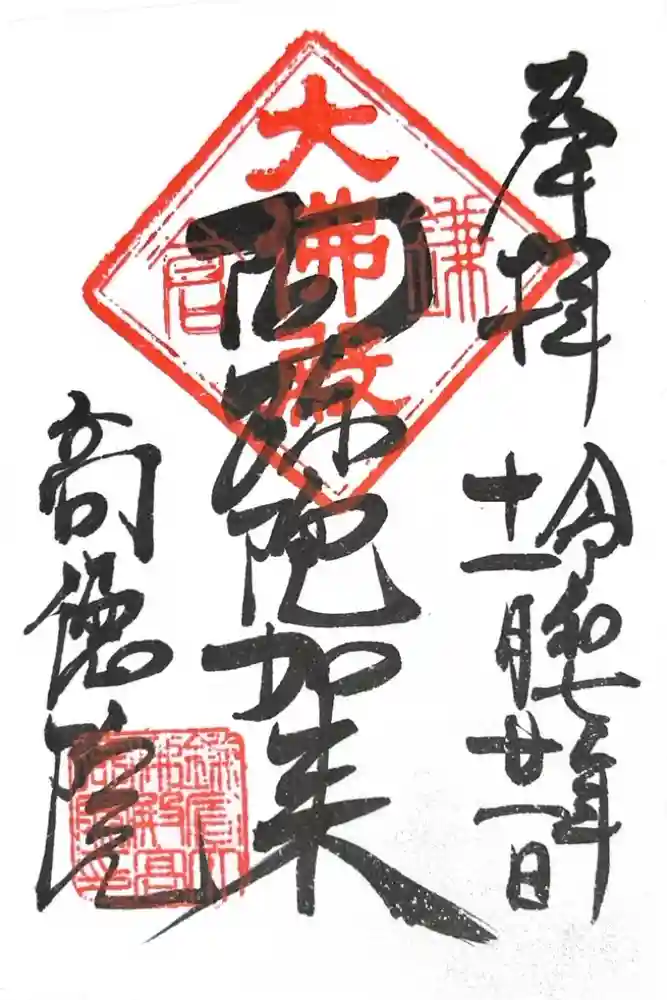 奉拝
令和七年
十一月廿一日
鎌倉
大佛殿
阿弥陀如来
高徳院